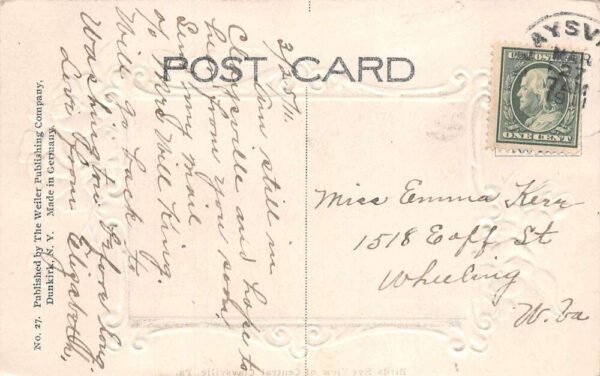 POST CARD
3/25/11.
Am still in
Claysville and hope to
hear from you soon.
Send my mail
% Mrs Will King.
Will go back to
Washington before long.
Love from Elizabeth,
Miss Emma Kerr
1518 Eoff St
Wheeling
W. Va
AYSV
MAR
27
U.S. POSTAGE
ONE CENT
No. 27. Published by The Weiler Publishing Company,
Dunkirk, N. Y. Made in Germany.
Birds Eye View of Central Claysville, Pa.